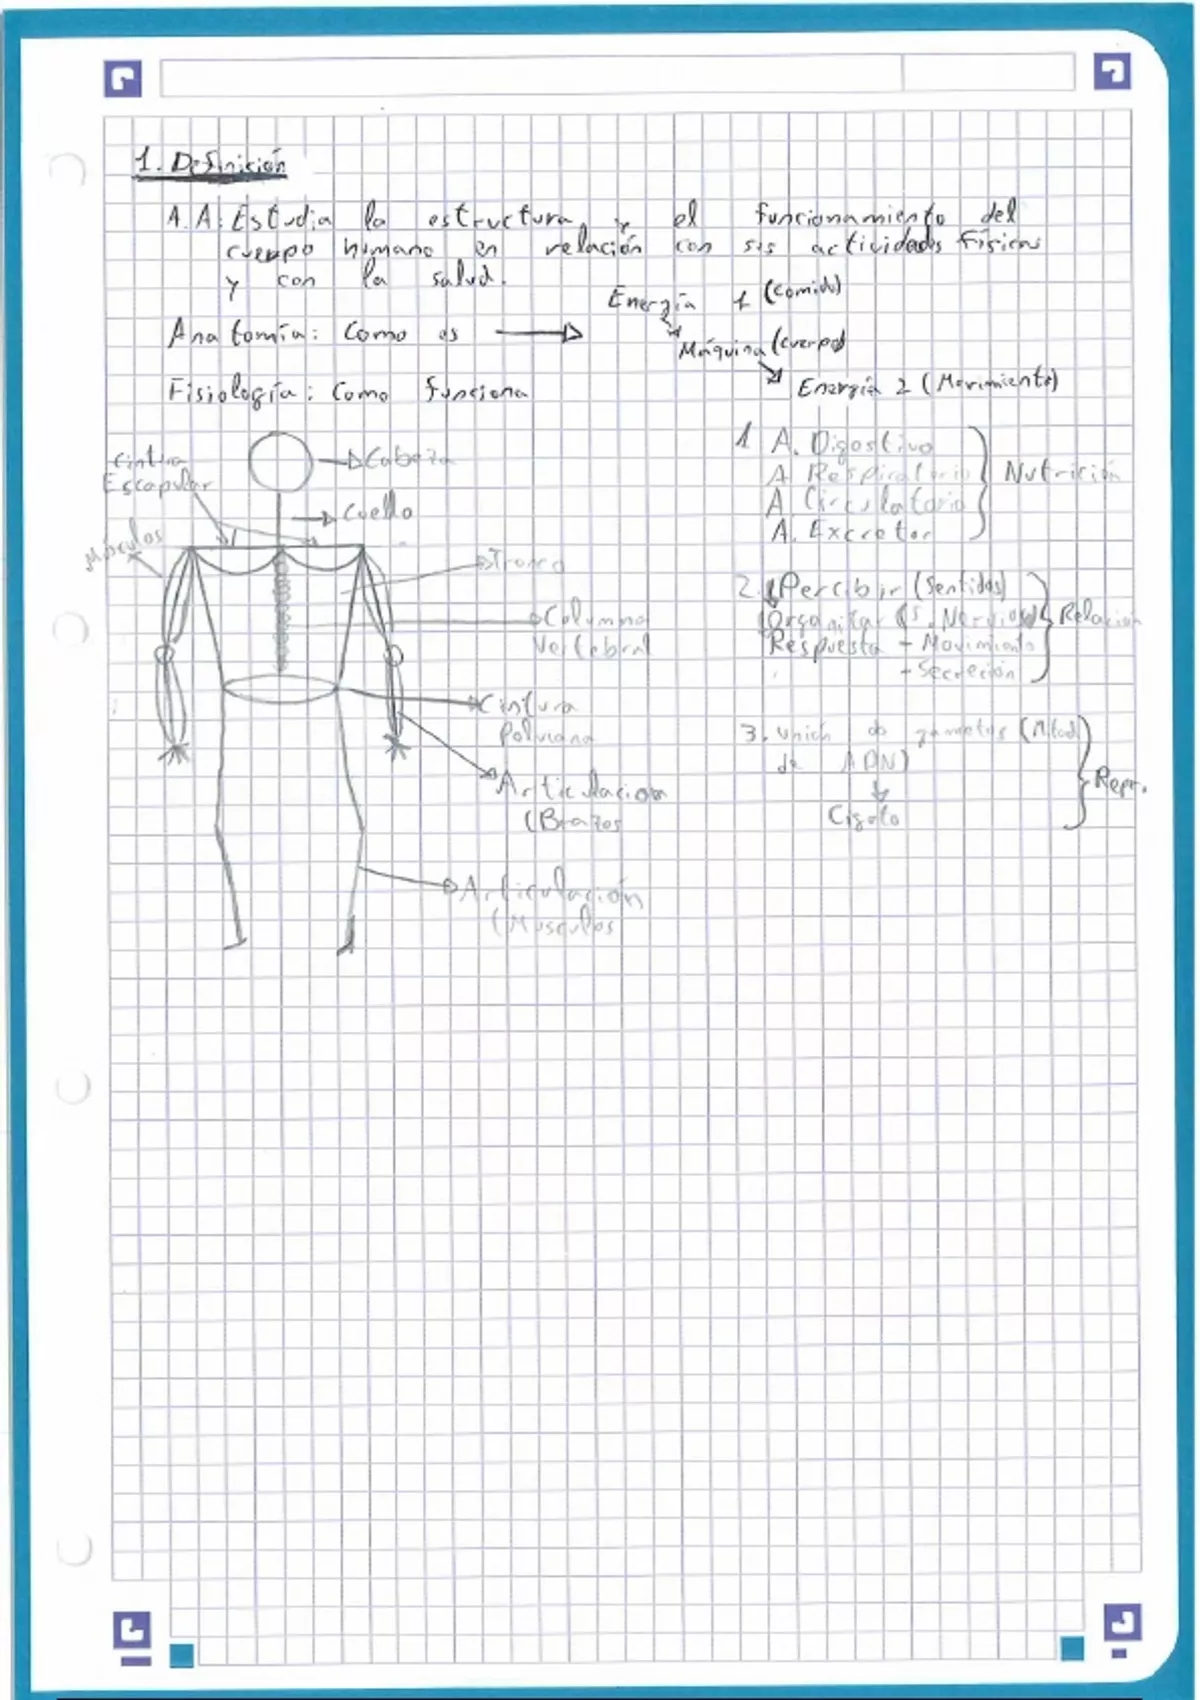 1. Definición
A.A: Estudia la estructura y el funcionamiento del
cuerpo humano en relación con sus actividades físicas
y con la salud.
Energía 1 (comida)
Anatomía: Como es
Máquina (cuerpo)
Energía 2 (Movimiento)
Fisiología: Como funciona
Cintura
Escapular
Cabeza
Cuello
Músculos
Tronco
Columna
Vertebral
Cintura
Pelviana
Articulacion
(Brazos
Articulación
(Musculos
1 A. Digestivo
A. Respiratorio
A. Circulatorio
A. Excretor
Nutrición
2. Percibir (Sentidos)
Organizar (S. Nervioso)
Respuesta - Movimiento
- Secreción
Relación
3. Unión de gametos (Mitad
de ADN)
Cigoto
Repr.